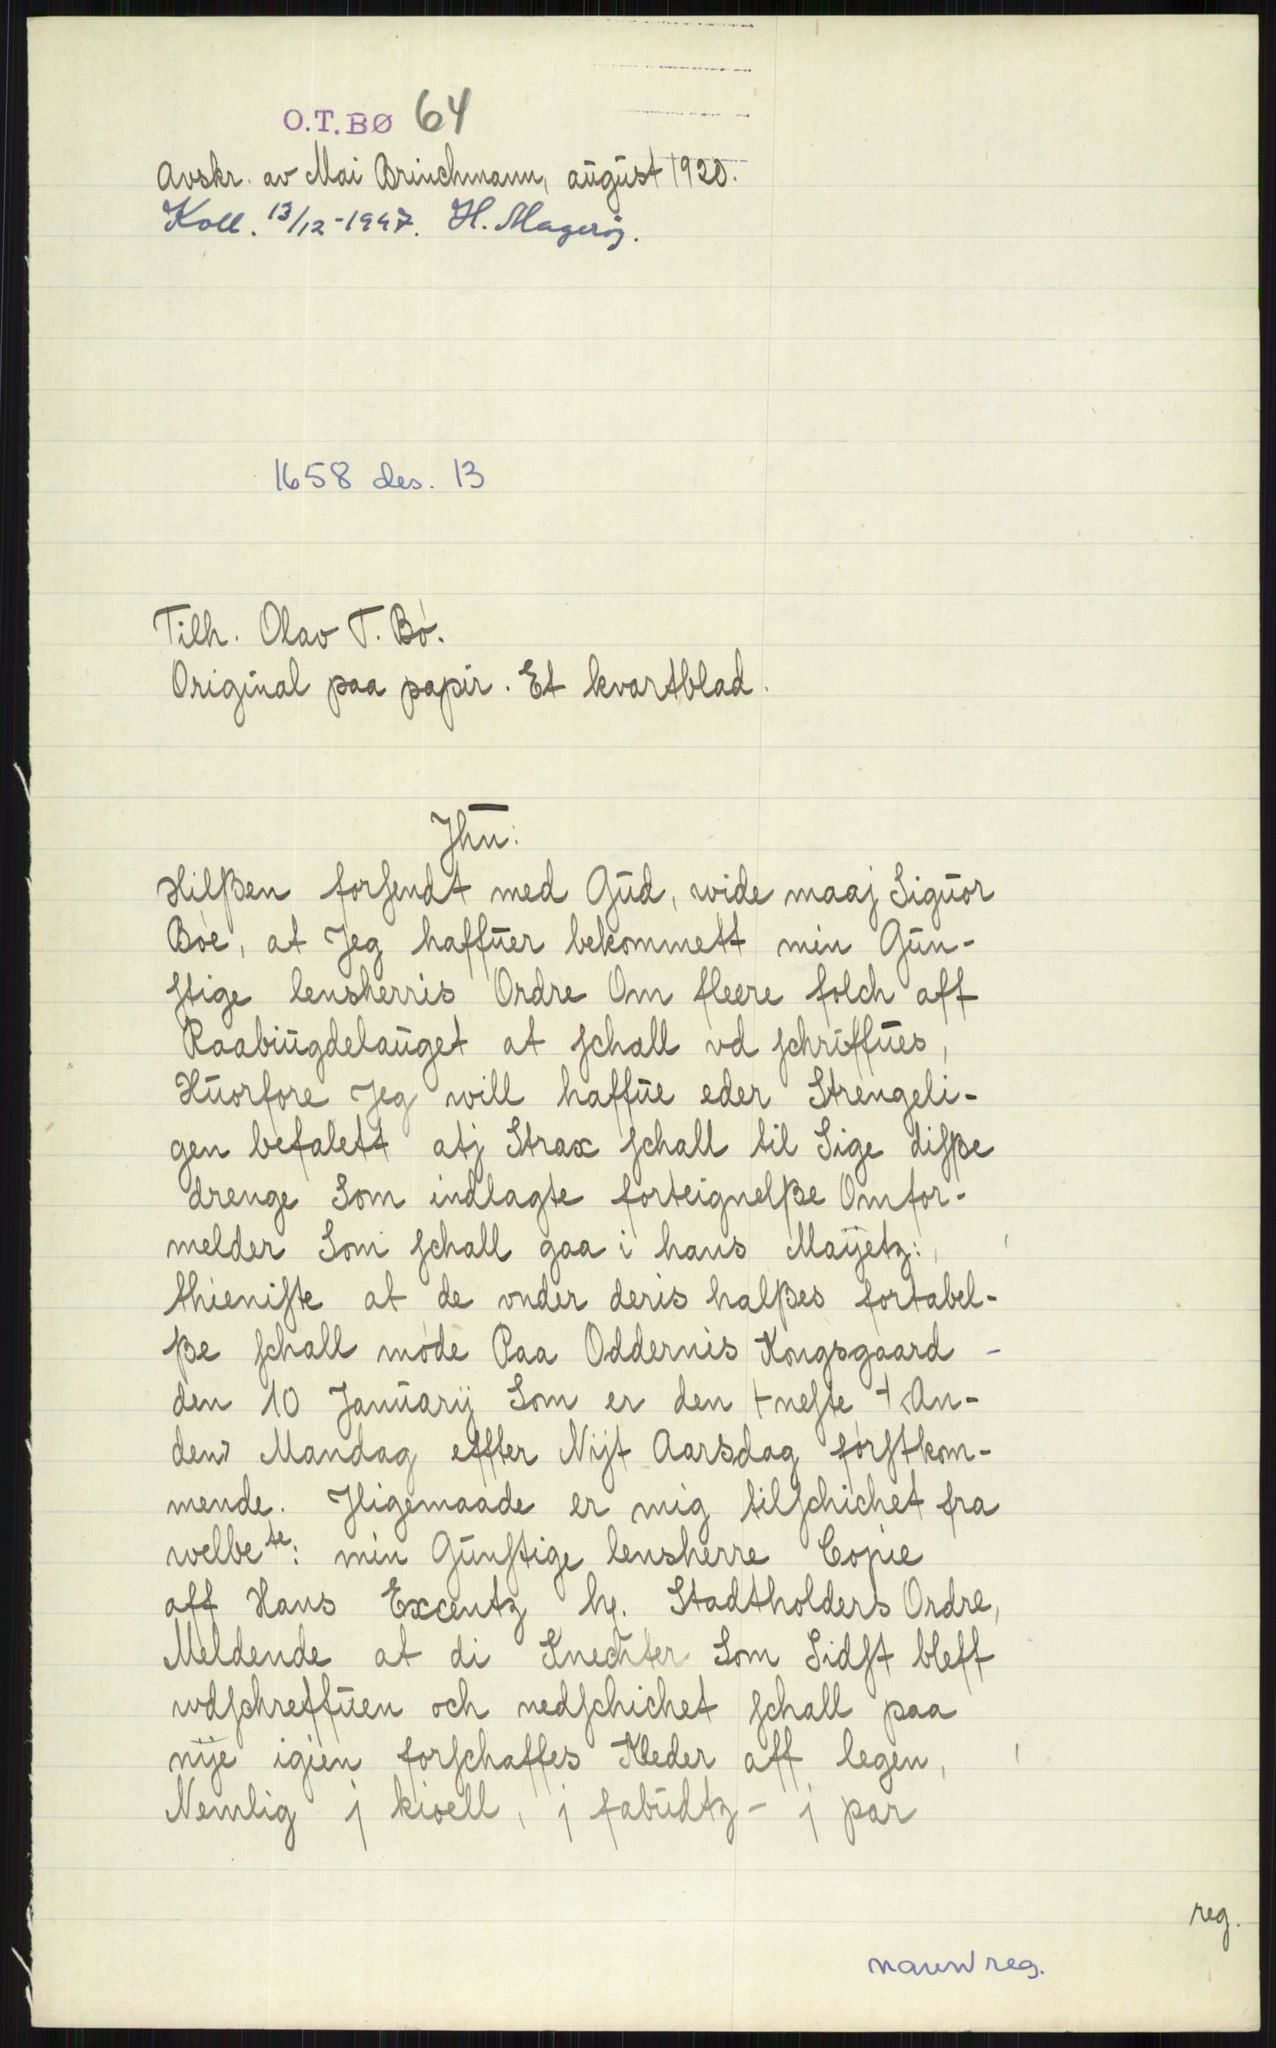 O.T.BØ 64
Avskr. av Mai Brinchmann, august 1920.
Koll. 13/12-1947. H. Magerøy.
1658 des. 13
Tilh. Olav T. Bø.
Original paa papir. Et kvartblad.
Jhu:
Hilßen forſendt med Gud, wide maaj Siguor
Bøe, at Jeg haffuer bekommett min Gun-
ſtige lensherris Ordre Om fleere folch aff
Raabiugdelauget at ſchall vd ſchriffues,
Huorfore Jeg will haffue eder Strengeli-
gen befalett atj Strax ſchall til Sige diſße
drenge Som indlagte forteignelße Omfor-
melder Som ſchall gaa i hans Maÿetz:,
thieniſte at de vnder deris halßes fortabel-
ße ſchall møde Paa Oddernis Kongsgaard -
den 10 Januarij Som er den + neſte + An-
den Mandag effter Nijt Aarsdag førſtkom-
mende. Jligemaade er mig tilſchichet fra
welbete: min Gunſtige lensherre Copie
aff Hans Excentz hr. Stadtholders Ordre,
Meldende at di Knechter Som Sidſt bleff
wdſchreffuen och nedſchichet ſchall paa
nÿe igien forſchaffes Kleder aff legen,
Nemlig j kioell, j fabudtz - j par
reg.
navn reg.